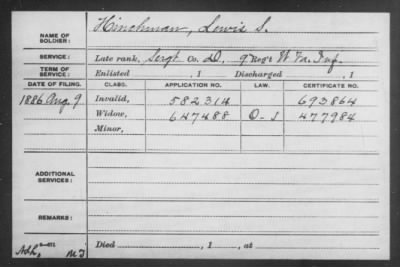 NAME OF SOLDIER: Hinchman, Lewis S.
SERVICE: Late rank, Sergt Co. D, 9 Reg't W Va. Inf.
TERM OF SERVICE: Enlisted , 1 Discharged , 1
DATE OF FILING. CLASS. APPLICATION NO. LAW. CERTIFICATE NO.
1886 Aug. 9 Invalid, 582314 693864
Widow, 647488 O-J 477984
Minor,
ADDITIONAL SERVICES:
REMARKS:
Died , 1 , at